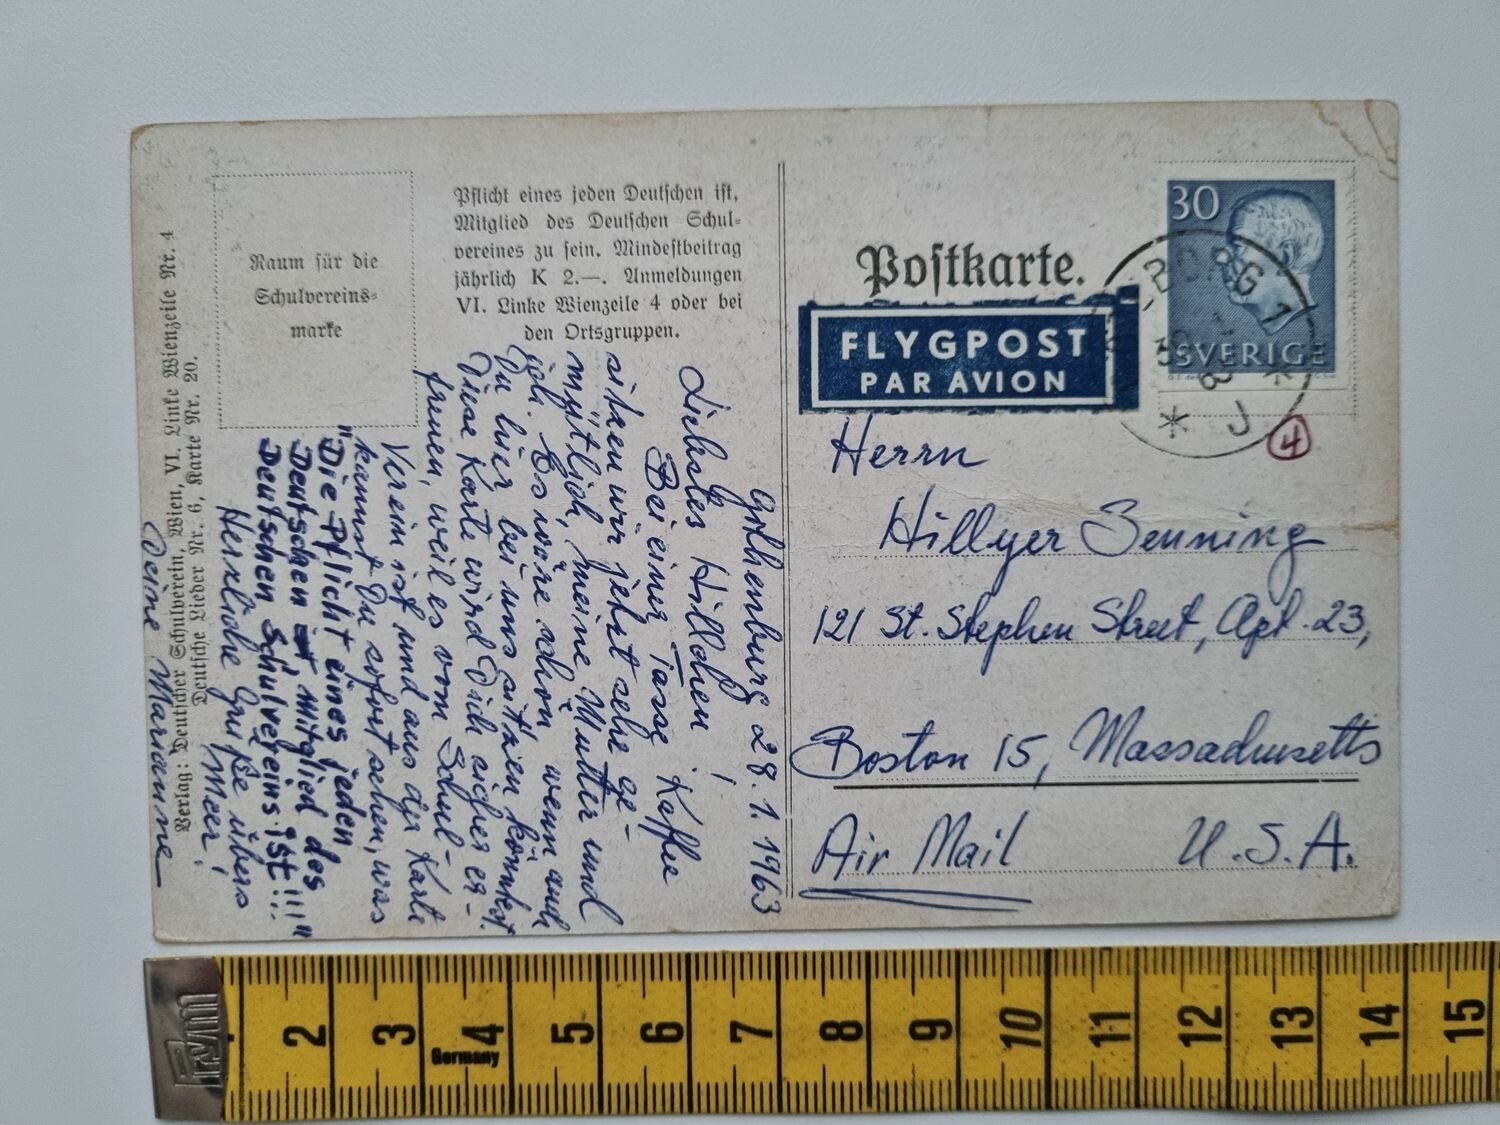 Verlag: Deutscher Schulverein, Wien, VI. Linke Wienzeile Nr. 4
Deutsche Lieder Nr. 6, Karte Nr. 20.
Raum für die
Schulvereins-
marke
Pflicht eines jeden Deutschen ist,
Mitglied des Deutschen Schul-
vereines zu sein. Mindestbeitrag
jährlich K 2.—. Anmeldungen
VI. Linke Wienzeile 4 oder bei
den Ortsgruppen.
Gothenburg 28.1.1963
Liebstes Hillchen!
Bei einer Tasse Kaffee
sitzen wir jetzt sehr ge-
mütlich, meine Mutter und
ich. Es wäre schön, wenn auch
Du hier bei uns sitzen könntest.
Diese Karte wird Dich sicher er-
freuen, weil es vom Schul-
Verein ist und aus der Karte
kannst Du sofort sehen, was
"Die Pflicht eines jeden
Deutschen ist, Mitglied des
Deutschen Schulvereins ist!!!!"
Herzliche Grüße übers
Meer!
Deine Marianne
Postkarte.
FLYGPOST
PAR AVION
30
SVERIGE
BORG 1
* J *
4
Herrn
Hillyer Senning
121 St. Stephen Street, Apt. 23,
Boston 15, Massachusetts
Air Mail U.S.A.
Prym
Germany
2 3 4 5 6 7 8 9 10 11 12 13 14 15